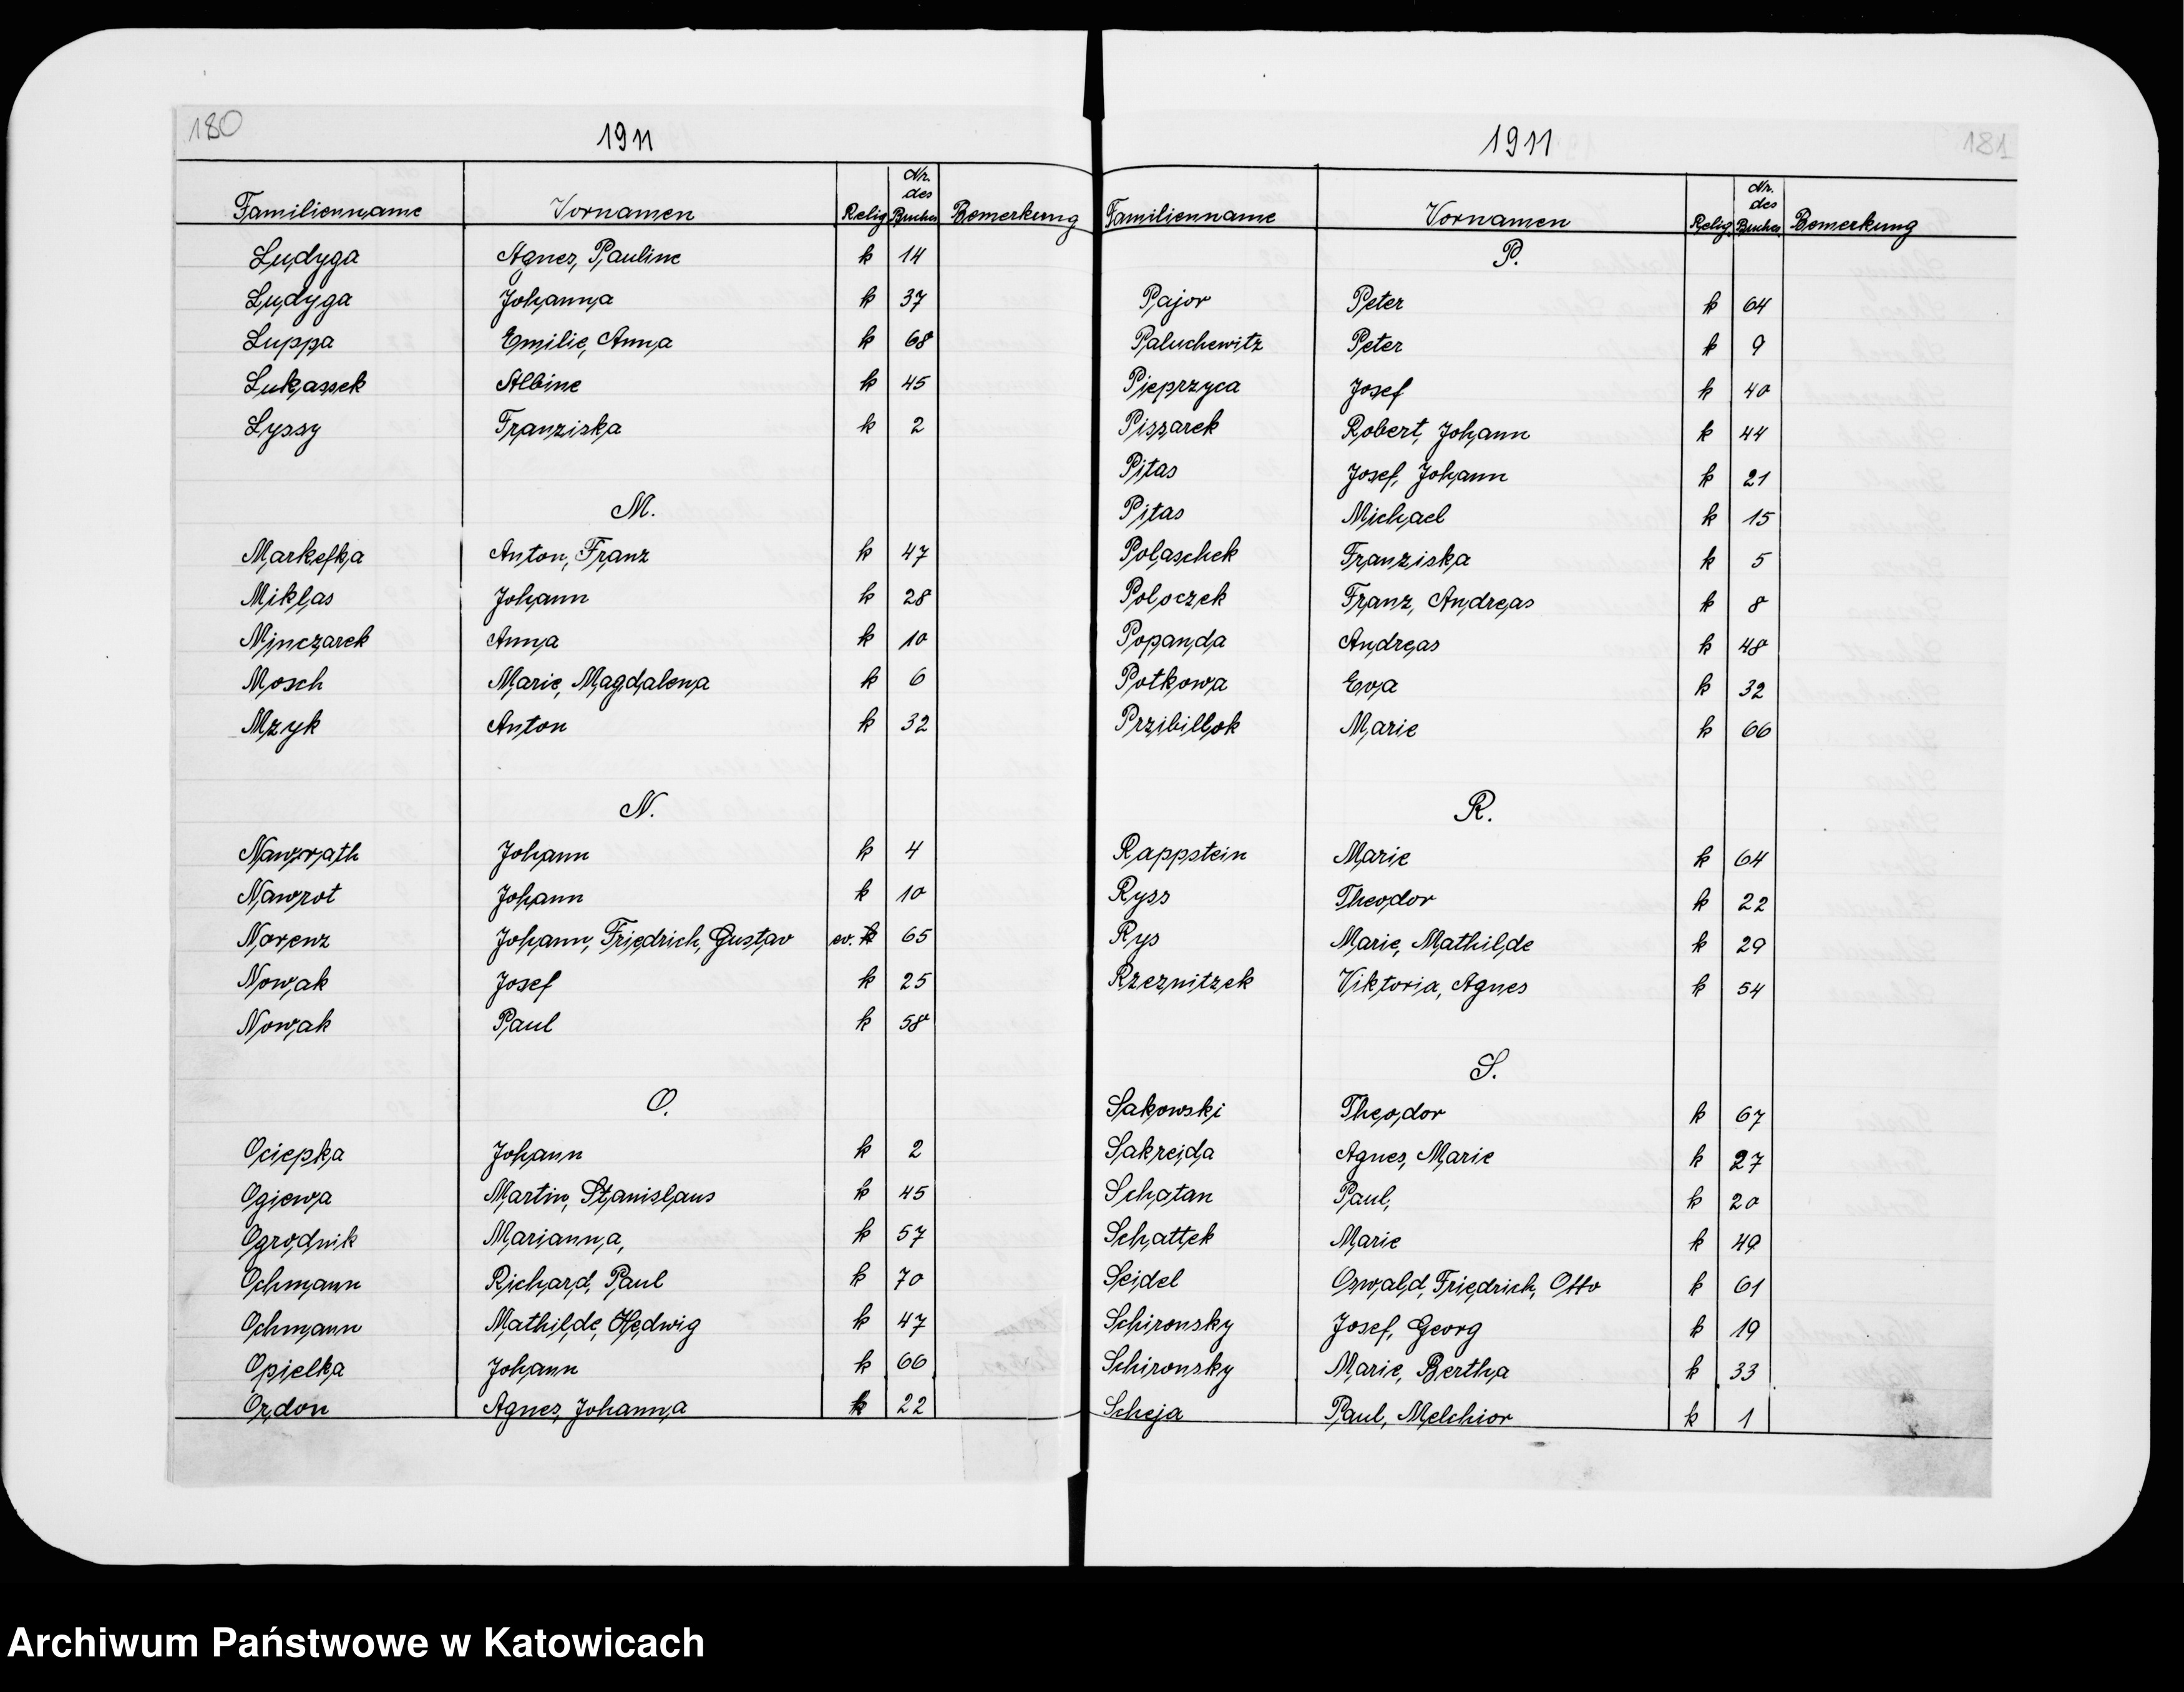 180
1911
Familienname Vornamen Relig Nr. des Buches Bemerkung
Ludyga Agnes, Pauline k 14
Ludyga Johanna k 37
Luppa Emilie, Anna k 68
Lukassek Albine k 45
Lyssy Franziska k 2
M.
Markefka Anton, Franz k 47
Miklas Johann k 28
Minczarek Anna k 10
Mosch Marie, Magdalena k 6
Mzyk Anton k 32
N.
Nawrath Johann k 4
Nawrot Johann k 10
Norenz Johann, Friedrich, Gustav ev. k 65
Nowak Josef k 25
Nowak Paul k 58
O.
Ociepka Johann k 2
Ogiewa Martin, Stanislaus k 45
Ogrodnik Marianna, k 57
Ochmann Richard, Paul k 70
Ochmann Mathilde, Hedwig k 47
Opielka Johann k 66
Ordon Agnes, Johanna k 22
1911
181
Familienname Vornamen Relig. Nr. des Buches Bemerkung
P.
Pajor Peter k 64
Paluchewitz Peter k 9
Pieprzyca Josef k 40
Piszarek Robert, Johann k 44
Pitas Josef, Johann k 21
Pitas Michael k 15
Polaschek Franziska k 5
Poloczek Franz, Andreas k 8
Popanda Andreas k 48
Potkowa Eva k 32
Przibillok Marie k 66
R.
Rappstein Marie k 64
Ryss Theodor k 22
Rys Marie, Mathilde k 29
Rzeznitzek Viktoria, Agnes k 54
S.
Sakowski Theodor k 67
Sakreida Agnes, Marie k 27
Schatan Paul, k 20
Schattek Marie k 49
Seidel Oswald, Friedrich, Otto k 61
Schironsky Josef, Georg k 19
Schironsky Marie, Bertha k 33
Scheja Paul, Melchior k 1
Archiwum Państwowe w Katowicach